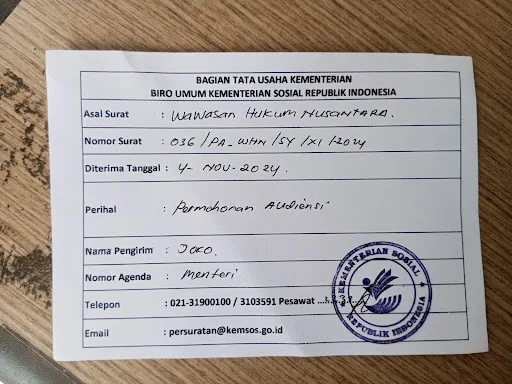 BAGIAN TATA USAHA KEMENTERIAN
BIRO UMUM KEMENTERIAN SOSIAL REPUBLIK INDONESIA
Asal Surat : WAWASAN HUKUM NUSANTARA.
Nomor Surat : 036/PA_WHN/SY/XI/2024
Diterima Tanggal : 4- NOV-2024.
Perihal : Permohonan Audiensi
Nama Pengirim : JOKO.
Nomor Agenda : Menteri
Telepon : 021-31900100 / 3103591 Pesawat
Email : persuratan@kemsos.go.id
KEMENTERIAN SOSIAL
REPUBLIK INDONESIA